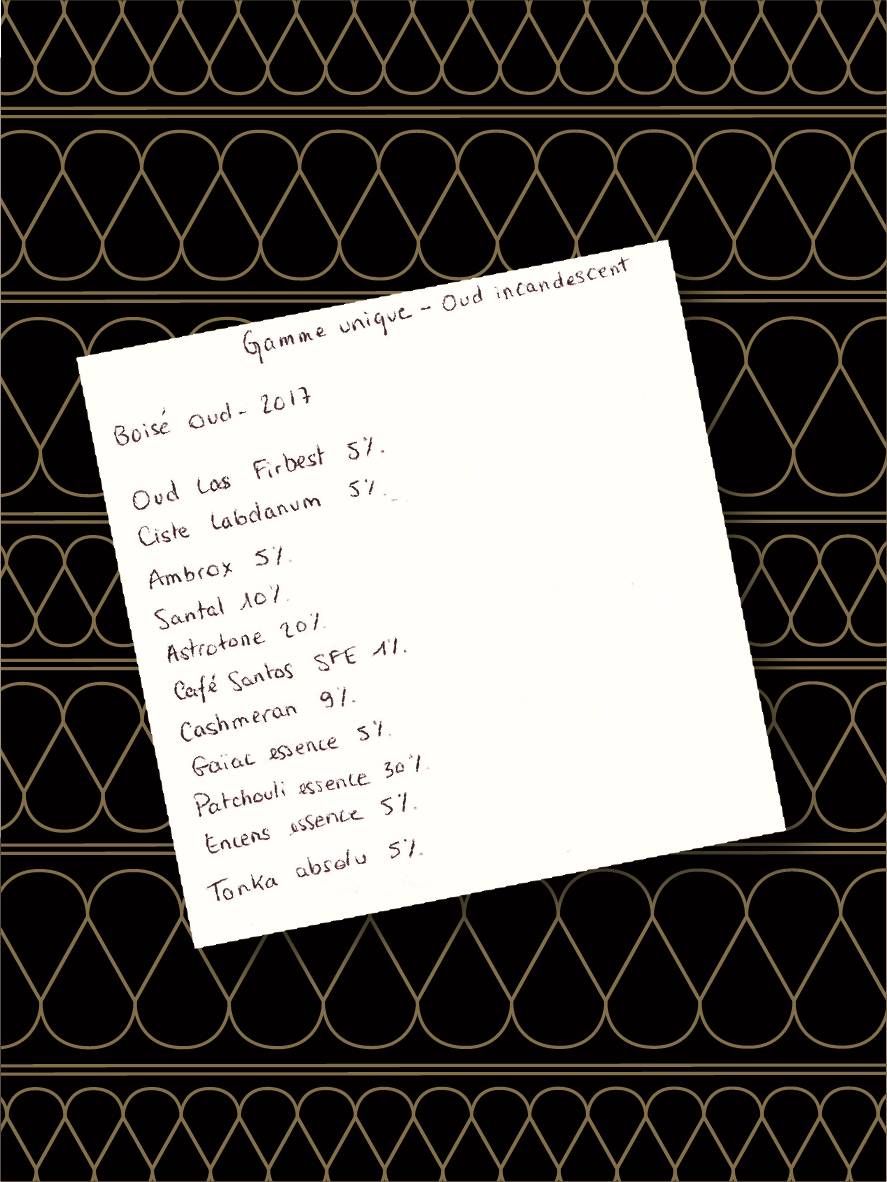 Gamme unique - Oud incandescent
Boisé Oud - 2017
Oud Las Firbest 5%.
Ciste labdanum 5%.
Ambrox 5%.
Santal 10%.
Astrotone 20%.
Café Santos SFE 1%.
Cashmeran 9%.
Gaïac essence 5%.
Patchouli essence 30%.
Encens essence 5%.
Tonka absolu 5%.